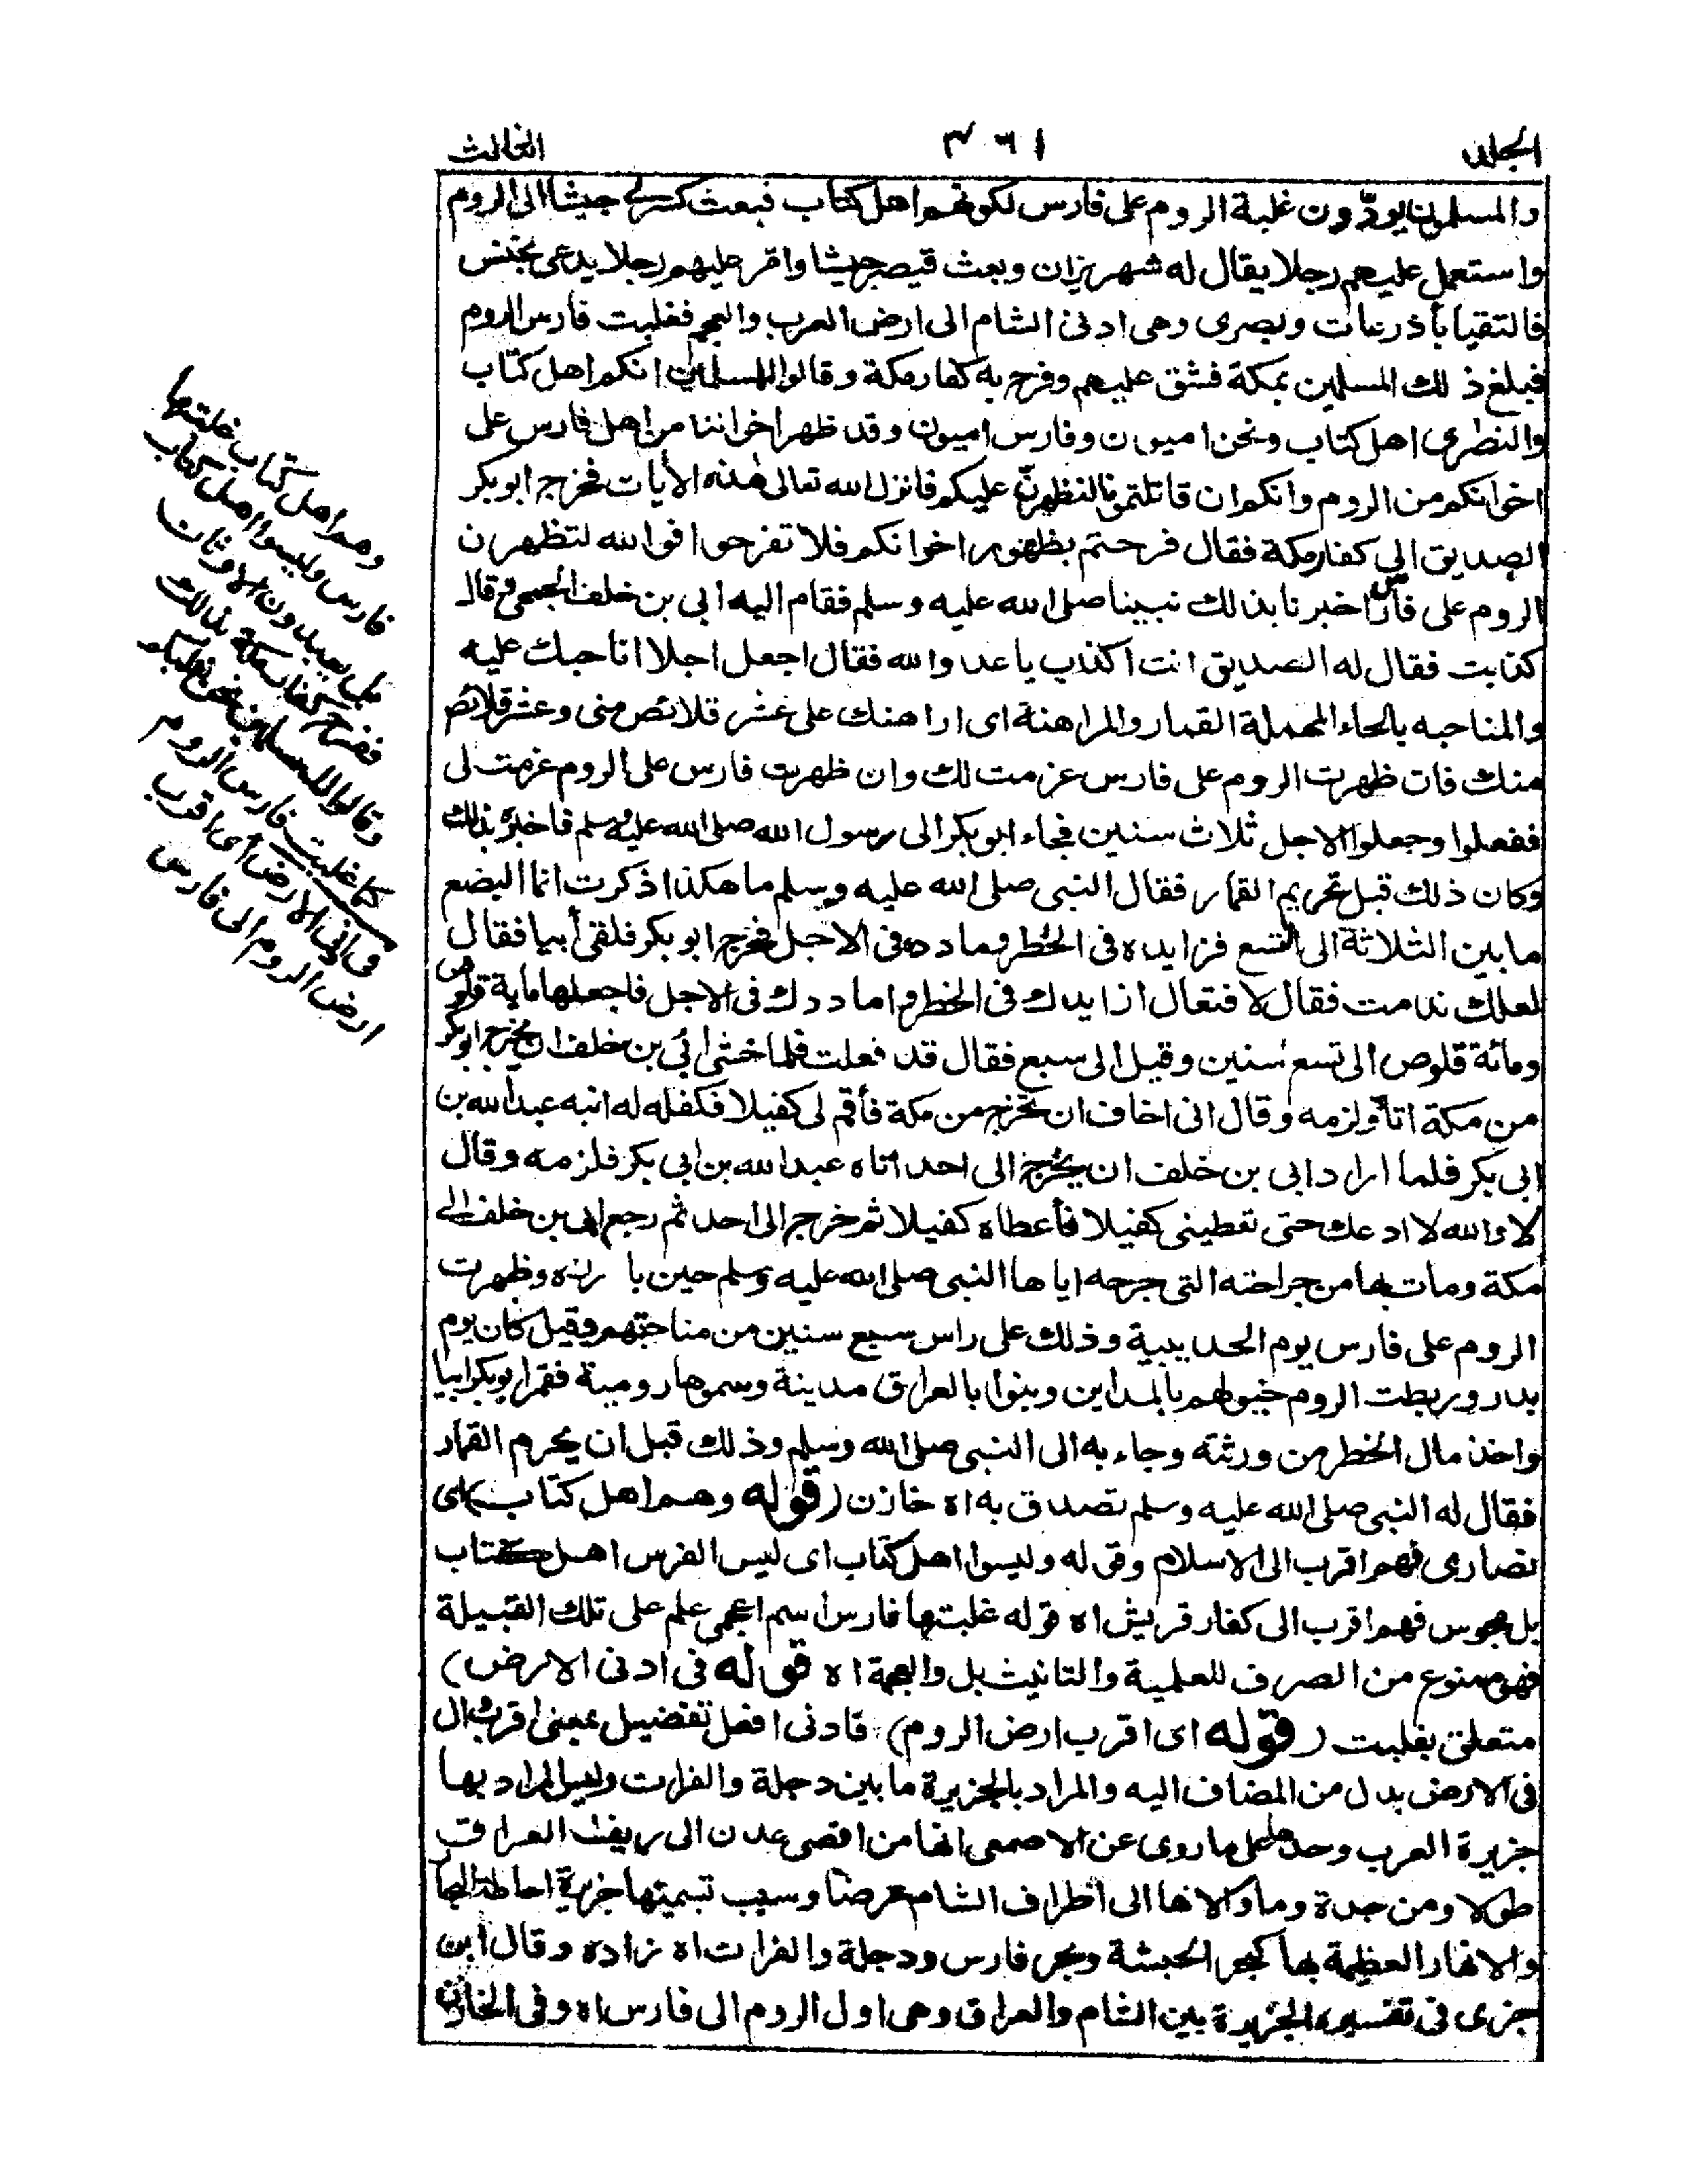 الجلد ٣٠٦١ الثالث
والمسلمون يودّون غلبة الروم على فارس لكونهم اهل كتاب فبعث كسرى جيشا الى الروم
واستعمل عليهم رجلا يقال له شهريزان وبعث قيصر جيشا وامّر عليهم رجلا يدعى بخنس
فالتقيا بأذرعات وبصرى وهى ادنى الشام الى ارض العرب والعجم فغلبت فارس الروم
فبلغ ذلك المسلمين بمكة فشق عليهم وفرح به كفار مكة وقالوا للمسلمين انكم اهل كتاب
والنصرى اهل كتاب ونحن اميون وفارس اميون وقد ظهر اخواننا من اهل فارس على
اخوانكم من الروم وانكم ان قاتلتمونا لنظهرنّ عليكم فانزل الله تعالى هذه الأيات فخرج ابو بكر
الصديق الى كفار مكة فقال فرحتم بظهور اخوانكم فلا تفرحوا فوالله لتظهرن
الروم على فارس اخبرنا بذلك نبينا صلى الله عليه وسلم فقام اليه ابى بن خلف الجمحى وقال
كذبت فقال له الصديق انت اكذب يا عدو الله فقال اجعل اجلا اناحبك عليه
والمناحبه بالحاء المهملة القمار والمراهنة اى اراهنك على عشر قلائص منى وعشر قلائص
منك فان ظهرت الروم على فارس غرمت لك وان ظهرت فارس على الروم غرمت لى
ففعلوا وجعلوا الاجل ثلاث سنين فجاء ابو بكر الى رسول الله صلى الله عليه وسلم فاخبره بذلك
وكان ذلك قبل تحريم القمار فقال النبى صلى الله عليه وسلم ما هكذا ذكرت انما البضع
ما بين الثلاثة الى التسع فزايده فى الخطر وماده فى الاجل فخرج ابو بكر فلقى أبيا فقال
لعلك ندمت فقال لا فتعال ازايدك فى الخطر واماددك فى الاجل فاجعلها ماية قلوص
ومائة قلوص الى تسع سنين وقيل الى سبع فقال قد فعلت فلما خشى ابيّ بن خلف ان يخرج ابو بكر
من مكة اتاه ولزمه وقال انى اخاف ان تخرج من مكة فأقم لى كفيلا فكفله له ابنه عبد الله بن
ابى بكر فلما اراد ابى بن خلف ان يخرج الى احد اتاه عبد الله بن ابى بكر فلزمه وقال
لا والله لا ادعك حتى تعطينى كفيلا فأعطاه كفيلا ثم خرج الى احد ثم رجع ابى بن خلف الى
مكة ومات بها من جراحته التى جرحه اياها النبى صلى الله عليه وسلم حين بارزه وظهرت
الروم على فارس يوم الحديبية وذلك على راس سبع سنين من مناحبتهم وقيل كان يوم
بدر وربطت الروم خيولهم بالمداين وبنوا بالعراق مدينة وسموها رومية فقمر ابو بكر ابيا
واخذ مال الخطر من ورثته وجاء به الى النبى صلى الله وسلم وذلك قبل ان يحرم القمار
فقال له النبى صلى الله عليه وسلم تصدق به اه خازن (قوله وهم اهل كتاب) اى
نصارى فهم اقرب الى الاسلام وقوله وليسوا اهل كتاب اى ليس الفرس اهل كتاب
بل مجوس فهم اقرب الى كفار قريش اه قوله غلبتها فارس اسم اعجمى علم على تلك القبيلة
فهو ممنوع من الصرف للعلمية والتانيث بل والعجمة اه قوله فى ادنى الارض)
متعلق بغلبت (قوله اى اقرب ارض الروم) فادنى افعل تفضيل بمعنى اقرب وال
فى الارض بدل من المضاف اليه والمراد بالجزيرة ما بين دجلة والفرات وليس المراد بها
جزيرة العرب وحدها على ما روى عن الاصمعى انها من اقصى عدن الى ريف العراق
طولا ومن جدة وما والاها الى اطراف الشام عرضا وسبب تسميتها جزيرة احاطة البحار
والانهار العظيمة بها كبحر الحبشة وبحر فارس ودجلة والفرات اه زاده وقال ابن
جزى فى تفسيره الجزيرة بين الشام والعراق وهى اول الروم الى فارس اه وفى الخازن
وهم اهل كتاب غلبتها
فارس وليسوا اهل كتاب
بل يعبدون الاوثان
ففرح كفار مكة بذلك
وقالوا للمسلمين نحن نغلبكم
كما غلبت فارس الروم
فى ادنى الارض أى اقرب
ارض الروم الى فارس